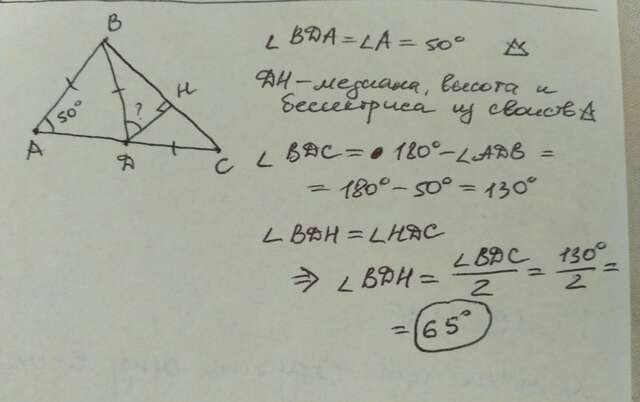 B
H
50°
?
A
D
C
∠BDA = ∠A = 50°
DH - медиана, высота и
биссектриса из свойств △
∠BDC = 180° - ∠ADB =
= 180° - 50° = 130°
∠BDH = ∠HDC
⇒ ∠BDH = ∠BDC/2 = 130°/2 =
= 65°